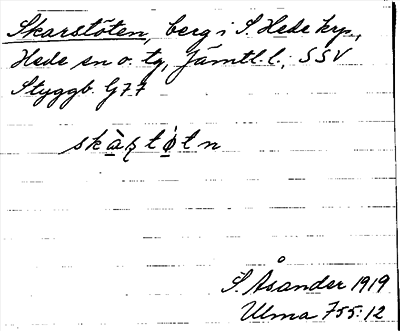 Skarstöten, berg i S. Hede krp.,
Hede sn o. tg, Jämtl. l.; SSV
Styggb. G77
skàʂtøtn
S. Åsander 1919
Ulma 755:12